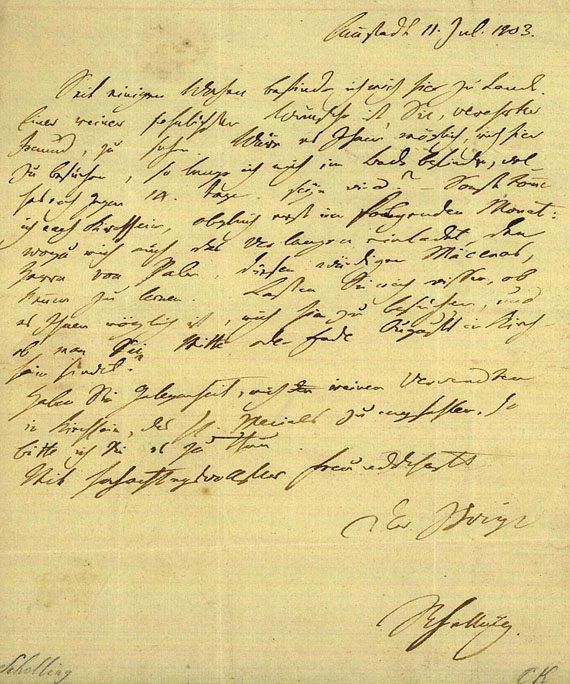 Cannstadt 11. Jul. 1803.
Seit einigen Wochen befinde ich mich hier zu Lande.
Einer meiner sehnlichsten Wünsche ist Sie, verehrter
Freund, zu sehen. Wäre es Ihnen möglich, mich hier
zu besuchen, so lange ich mich im Lande befinde, wel
ches noch gegen 14 Tage seyn wird? – Sonst
ich nach Kirchheim, obgleich erst im folgenden Monat:
wozu mich auch das Verlangen einladet, den
Herrn von Palm, diesen würdigen Mäcenas,
kennen zu lernen. Lassen Sie mich wissen, ob
es Ihnen möglich ist, mich hier zu besuchen, und
ob man Sie Mitte oder Ende Augusts in Kirch-
heim findet.
Haben Sie Gelegenheit, mich meinen Verwandten
in Kirchheim, des Specials zu empfehlen, so
bitte ich Sie es zu thun.
Mit hochachtungsvollster Freundschaft
Der Ihrige
Schelling.
Schelling
CK